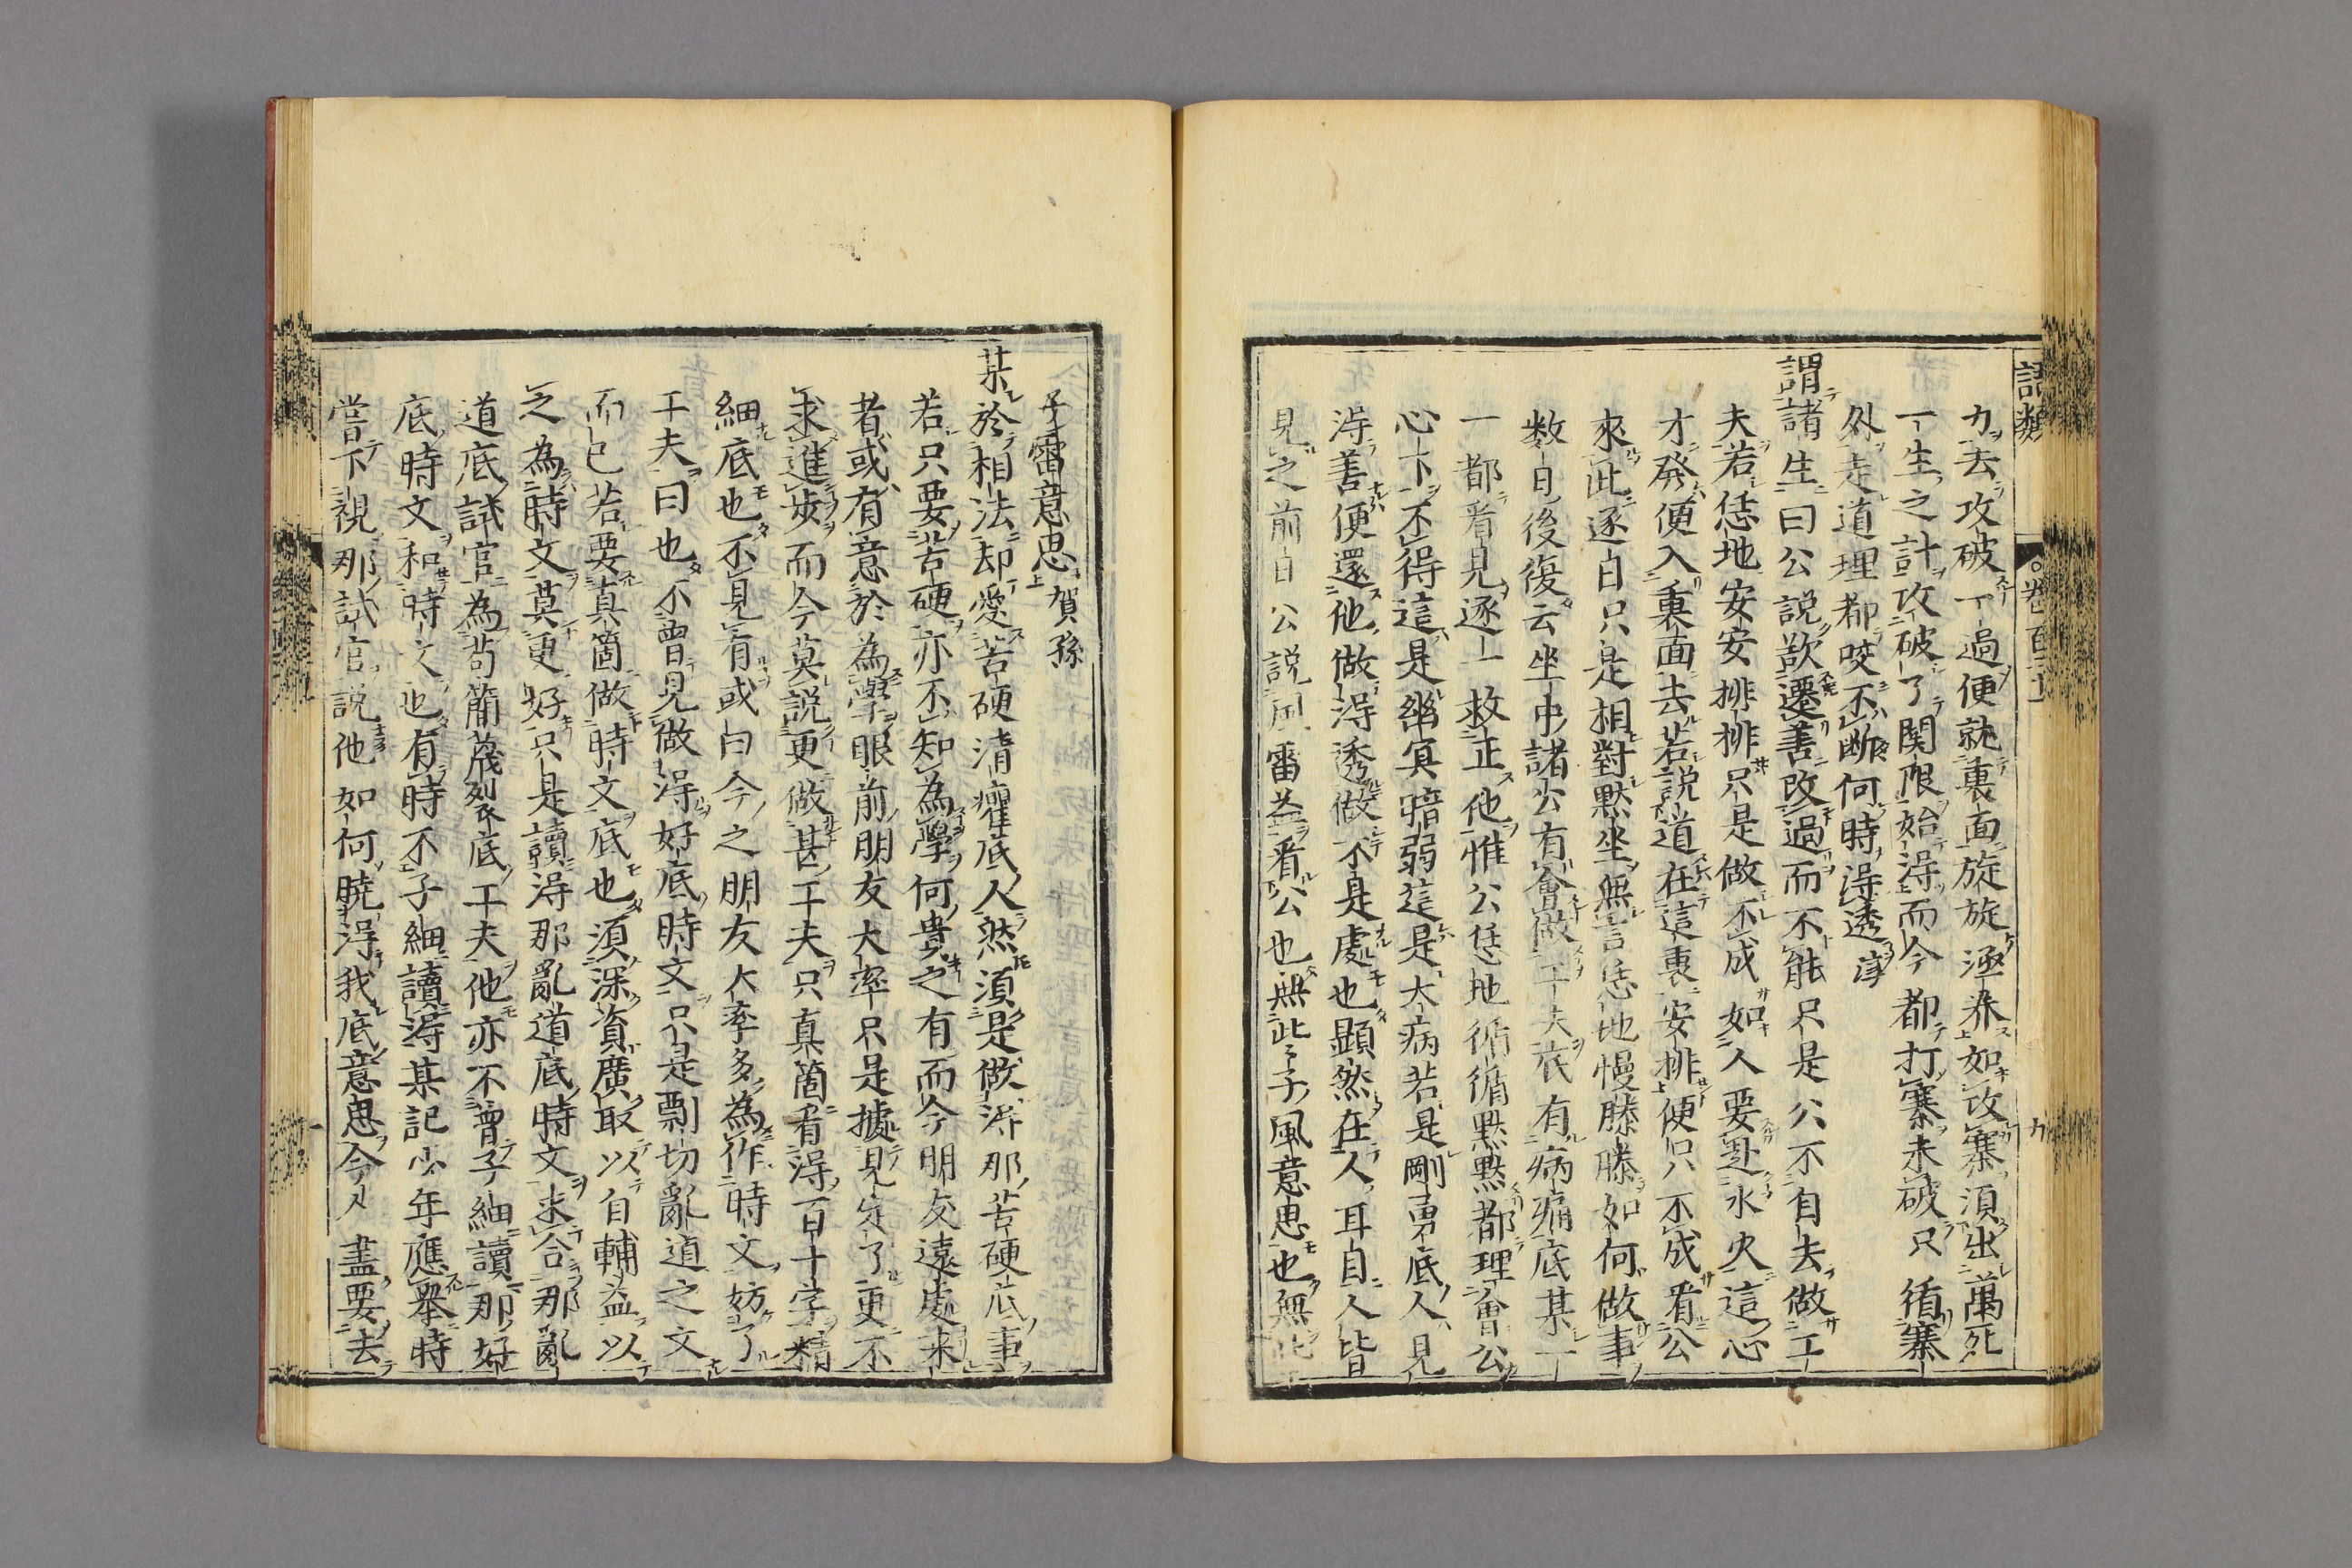 語類
卷百二十一
九
力去攻破一過便就裏面旋旋涵養如攻寨須出萬死
一生之計攻破了關限始得而今都打寨未破只循寨
外走道理都咬不斷何時得透 淳
謂諸生曰公説欲遷善改過而不能只是公不自去做工
夫若恁地安安排排只是做不成如人要赴水火這心
才發便入裏面去若説道在這裏安排便只不成看公
來此逐日只是相對默坐無言恁地慢滕滕如何做事
数日後復云坐中諸公有會做工夫底有病痛底某一
一都看見逐一救正他惟公恁地循循黙黙都理會公
心下不得這是幽冥暗弱這是大病若是剛勇底人見
得善便還他做得透做不是處也顯然在人耳目人皆
見之前日公説風雷益看公也無此子風意思也無此
子雷意思 賀孫
某於相法却愛苦硬清癯底人然須是做得那苦硬底事
若只要苦硬亦不知為學何貴之有而今朋友遠處來
者或有意於為學眼前朋友大率只是據見定了更不
求進歩而今莫説更做甚工夫只真箇看得百十字精
細底也不見有或曰今之朋友大率多為作時文妨了
工夫曰也不曾見做得好底時文只是剽切亂道之文
而已若要真箇做時文底也須深資廣取以自輔益以
之為時文莫更好只是讀得那亂道底時文求合那亂
道底試官為苟簡蔑裂底工夫他亦不曾子細讀那好
底時文和時文也有時不子細讀得某記少年應舉時
嘗下視那試官説他如何曉得我底意思今人盡要去